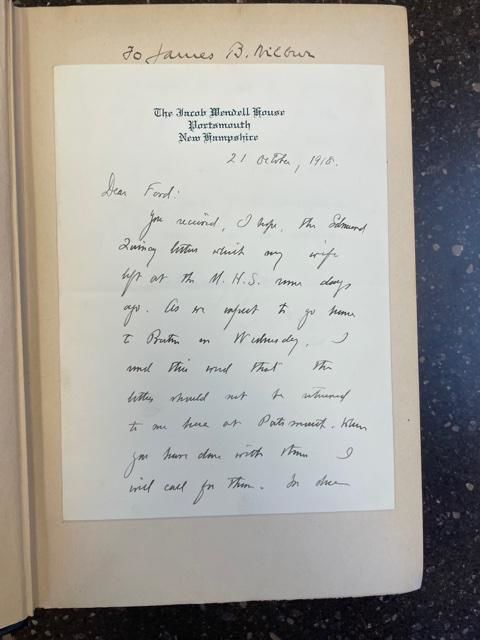 To James B. Wilbur
The Jacob Wendell House
Portsmouth
New Hampshire
21 October, 1918.
Dear Ford:
You received, I hope, the Edmund
Quincy letters which my wife
left at the M. H. S. some days
ago. As we expect to go home
to Boston on Wednesday, I
send this word that the
letters should not be returned
to me here at Portsmouth. When
you have done with them I
will call for them. In due